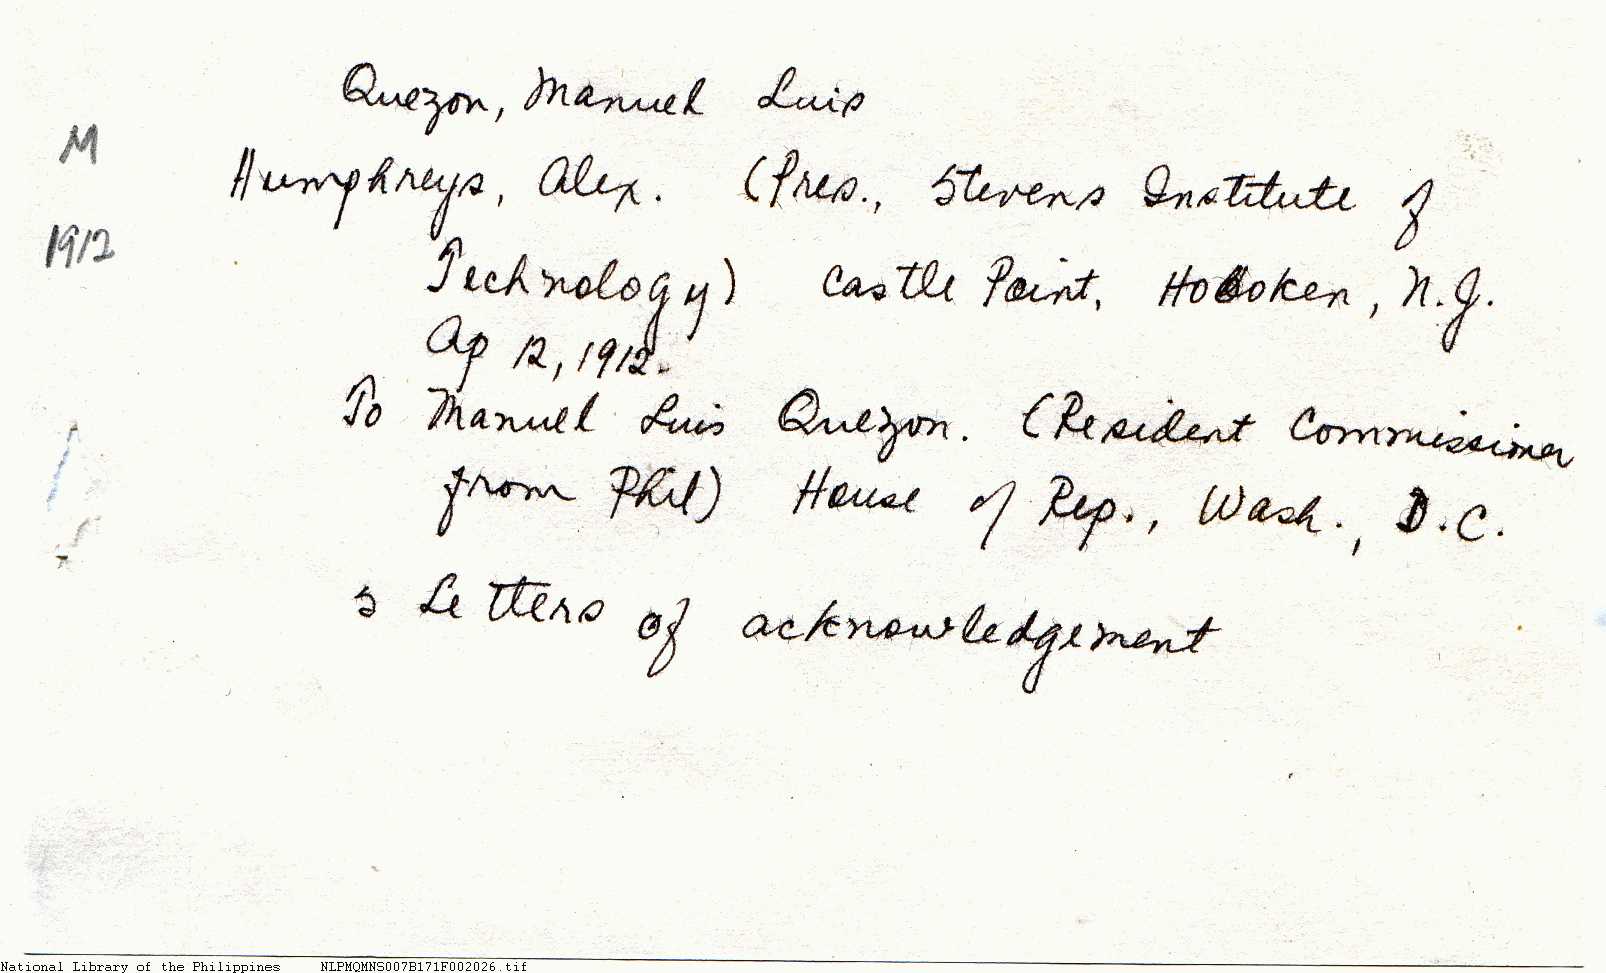 Quezon, Manuel Luis
M
Humphreys, Alex. (Pres., Stevens Institute of
1912
Technology) Castle Point, Hoboken, N.J.
Ap 12, 1912.
To Manuel Luis Quezon. (Resident Commissioner
from Phil) House of Rep., Wash., D.C.
5 Letters of acknowledgement
National Library of the Philippines NLPMQMNS007B171F002026.tif